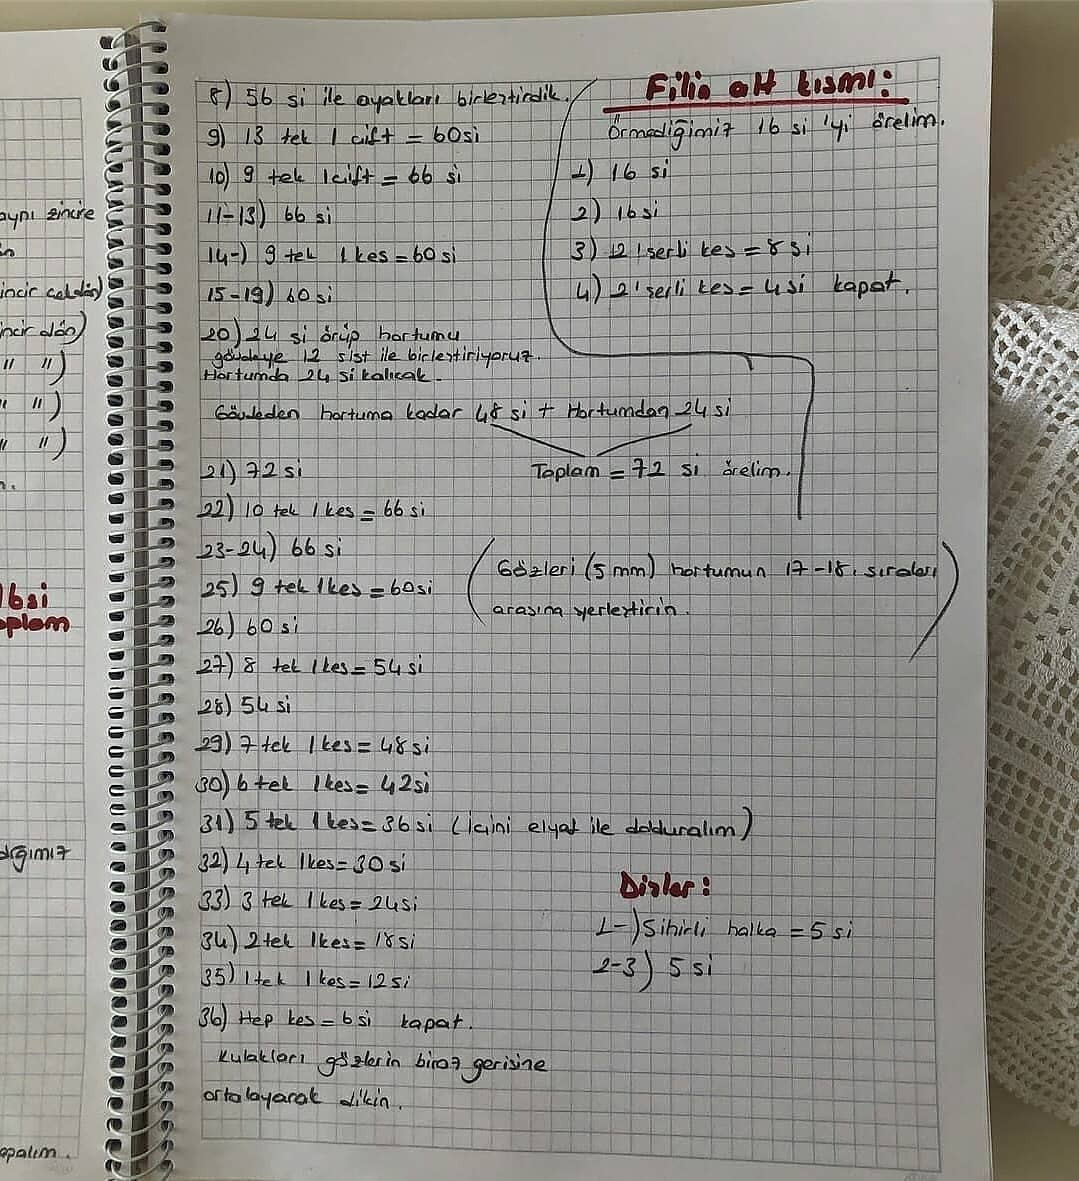 aynı zincire
incir çekdin)
incir alan)
" ")
" ")
" ")
16si
oplam
dığımız
apalım.
8) 56 si ile ayakları birleştirdik.
9) 13 tek 1 çift = 60si
10) 9 tek 1çift = 66 si
11-13) 66 si
14-) 9 tek 1 kes = 60 si
15-19) 60 si
20) 24 si örüp hortumu
gövdeye 12 sıst ile birleştiriyoruz.
Hortumda 24 si kalıcak.
Gövdeden hortuma kadar 48 si + Hortumdan 24 si
Toplam = 72 si örelim.
21) 72 si
22) 10 tek 1 kes = 66 si
23-24) 66 si
25) 9 tek 1kes = 60si
26) 60 si
27) 8 tek 1 kes = 54 si
28) 54 si
29) 7 tek 1kes = 48 si
30) 6 tek 1kes = 42si
31) 5 tek 1kes = 36 si (içini elyaf ile dolduralım)
32) 4 tek 1kes = 30 si
33) 3 tek 1kes = 24si
34) 2tek 1kes = 18si
35) 1tek 1 kes = 12 si
36) Hep kes = 6 si kapat.
Kulakları gözlerin biraz gerisine
ortalayarak dikin.
Filin alt kısmı:
Örmediğimiz 16 si 'yi örelim.
1) 16 si
2) 16 si
3) 12'serli kes = 8 si
4) 2'serli kes = 4si kapat.
(Gözleri (5 mm) hortumun 17-18. sıraları
arasına yerleştirin.)
Dişler:
1-) Sihirli halka = 5 si
2-3) 5 si